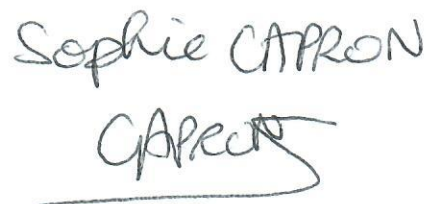 Sophie CAPRON
CAPRON